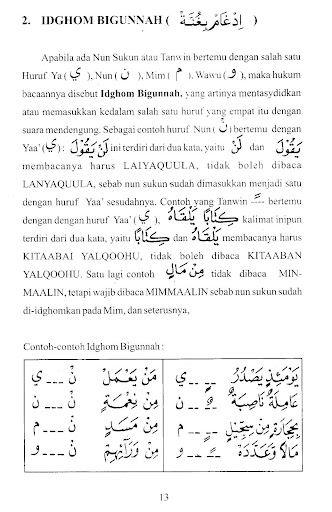 2. IDGHOM BIGUNNAH ( اِدْغَامٌ بِغُنَّةٍ )
Apabila ada Nun Sukun atau Tanwin bertemu dengan salah satu
Huruf Ya ( ي ), Nun ( ن ), Mim ( م ), Wawu ( و ), maka hukum
bacaannya disebut Idghom Bigunnah, yang artinya mentasydidkan
atau memasukkan kedalam salah satu huruf yang empat itu dengan
suara mendengung. Sebagai contoh huruf Nun ( نْ ) bertemu dengan
Yaa' ( ي ) : لَنْ يَقُوْلَ ini terdiri dari dua kata, yaitu لَنْ dan يَقُوْلَ
membacanya harus LAIYAQUULA, tidak boleh dibaca
LANYAQUULA, sebab nun sukun sudah dimasukkan menjadi satu
dengan huruf Yaa' sesudahnya. Contoh yang Tanwin ـًـ bertemu
dengan dengan huruf Yaa' ( ي ), كِتَابًا يَلْقَاهُ kalimat inipun
terdiri dari dua kata, yaitu كِتَابًا dan يَلْقَاهُ membacanya harus
KITAABAI YALQOOHU, tidak boleh dibaca KITAABAN
YALQOOHU. Satu lagi contoh مِنْ مَالٍ tidak dibaca MIN-
MAALIN, tetapi wajib dibaca MIMMAALIN sebab nun sukun sudah
di-idghomkan pada Mim, dan seterusnya,
Contoh-contoh Idghom Bigunnah :
يَوْمَئِذٍ يَصْدُرُ ـٍـ -- ي مَنْ يَعْمَلْ نْ --- ي
عَامِلَةٌ نَاصِبَةٌ ـٌـ -- ن مِنْ نِعْمَةٍ نْ --- ن
بِحِجَارَةٍ مِنْ سِجِّيْلٍ ـٍـ -- م مِنْ مَسَدٍ نْ --- م
مَالًا وَعَدَّدَهُ ـًـ -- و مِنْ وَرَائِهِمْ نْ --- و
13